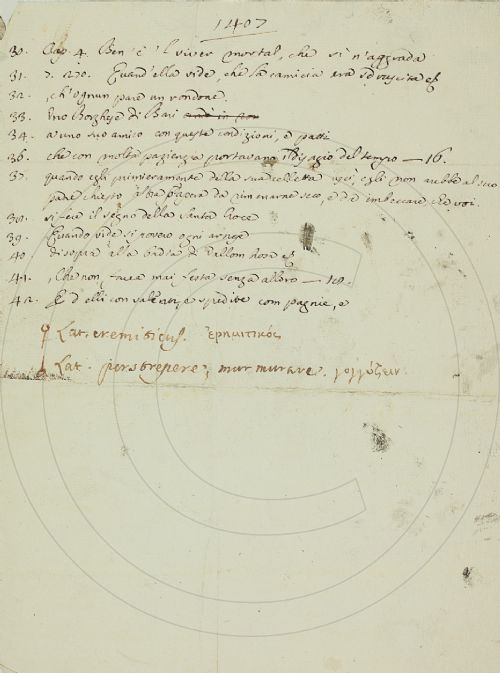 1407
30. Cap. 4. Ben è 'l viver mortal, che sì n'aggrada
31. 270. Quand'ella vide, che la camicia era sdruscita
32. ch'ognun pare un rondone.
33. Uno Borghese di Bari
34. a uno suo amico con queste condizioni, e patti
36. che con molta pazienza portavano il disagio del tempo — 16.
37. quando egli primieramente della sua colletta egli non avebbe al suo
pane chiesto
38. si fece il segno della santa Croce
39. Quando vide si povero ogni arnese
40. di sopra alla
41. Che non facea mai festa senza alloro — 19.
42. E d elli con salvanza spedite compagnie, e
Lat. eremiticus. ἐρημιτικός
Lat. perstrepere, murmurare. γογγύζειν